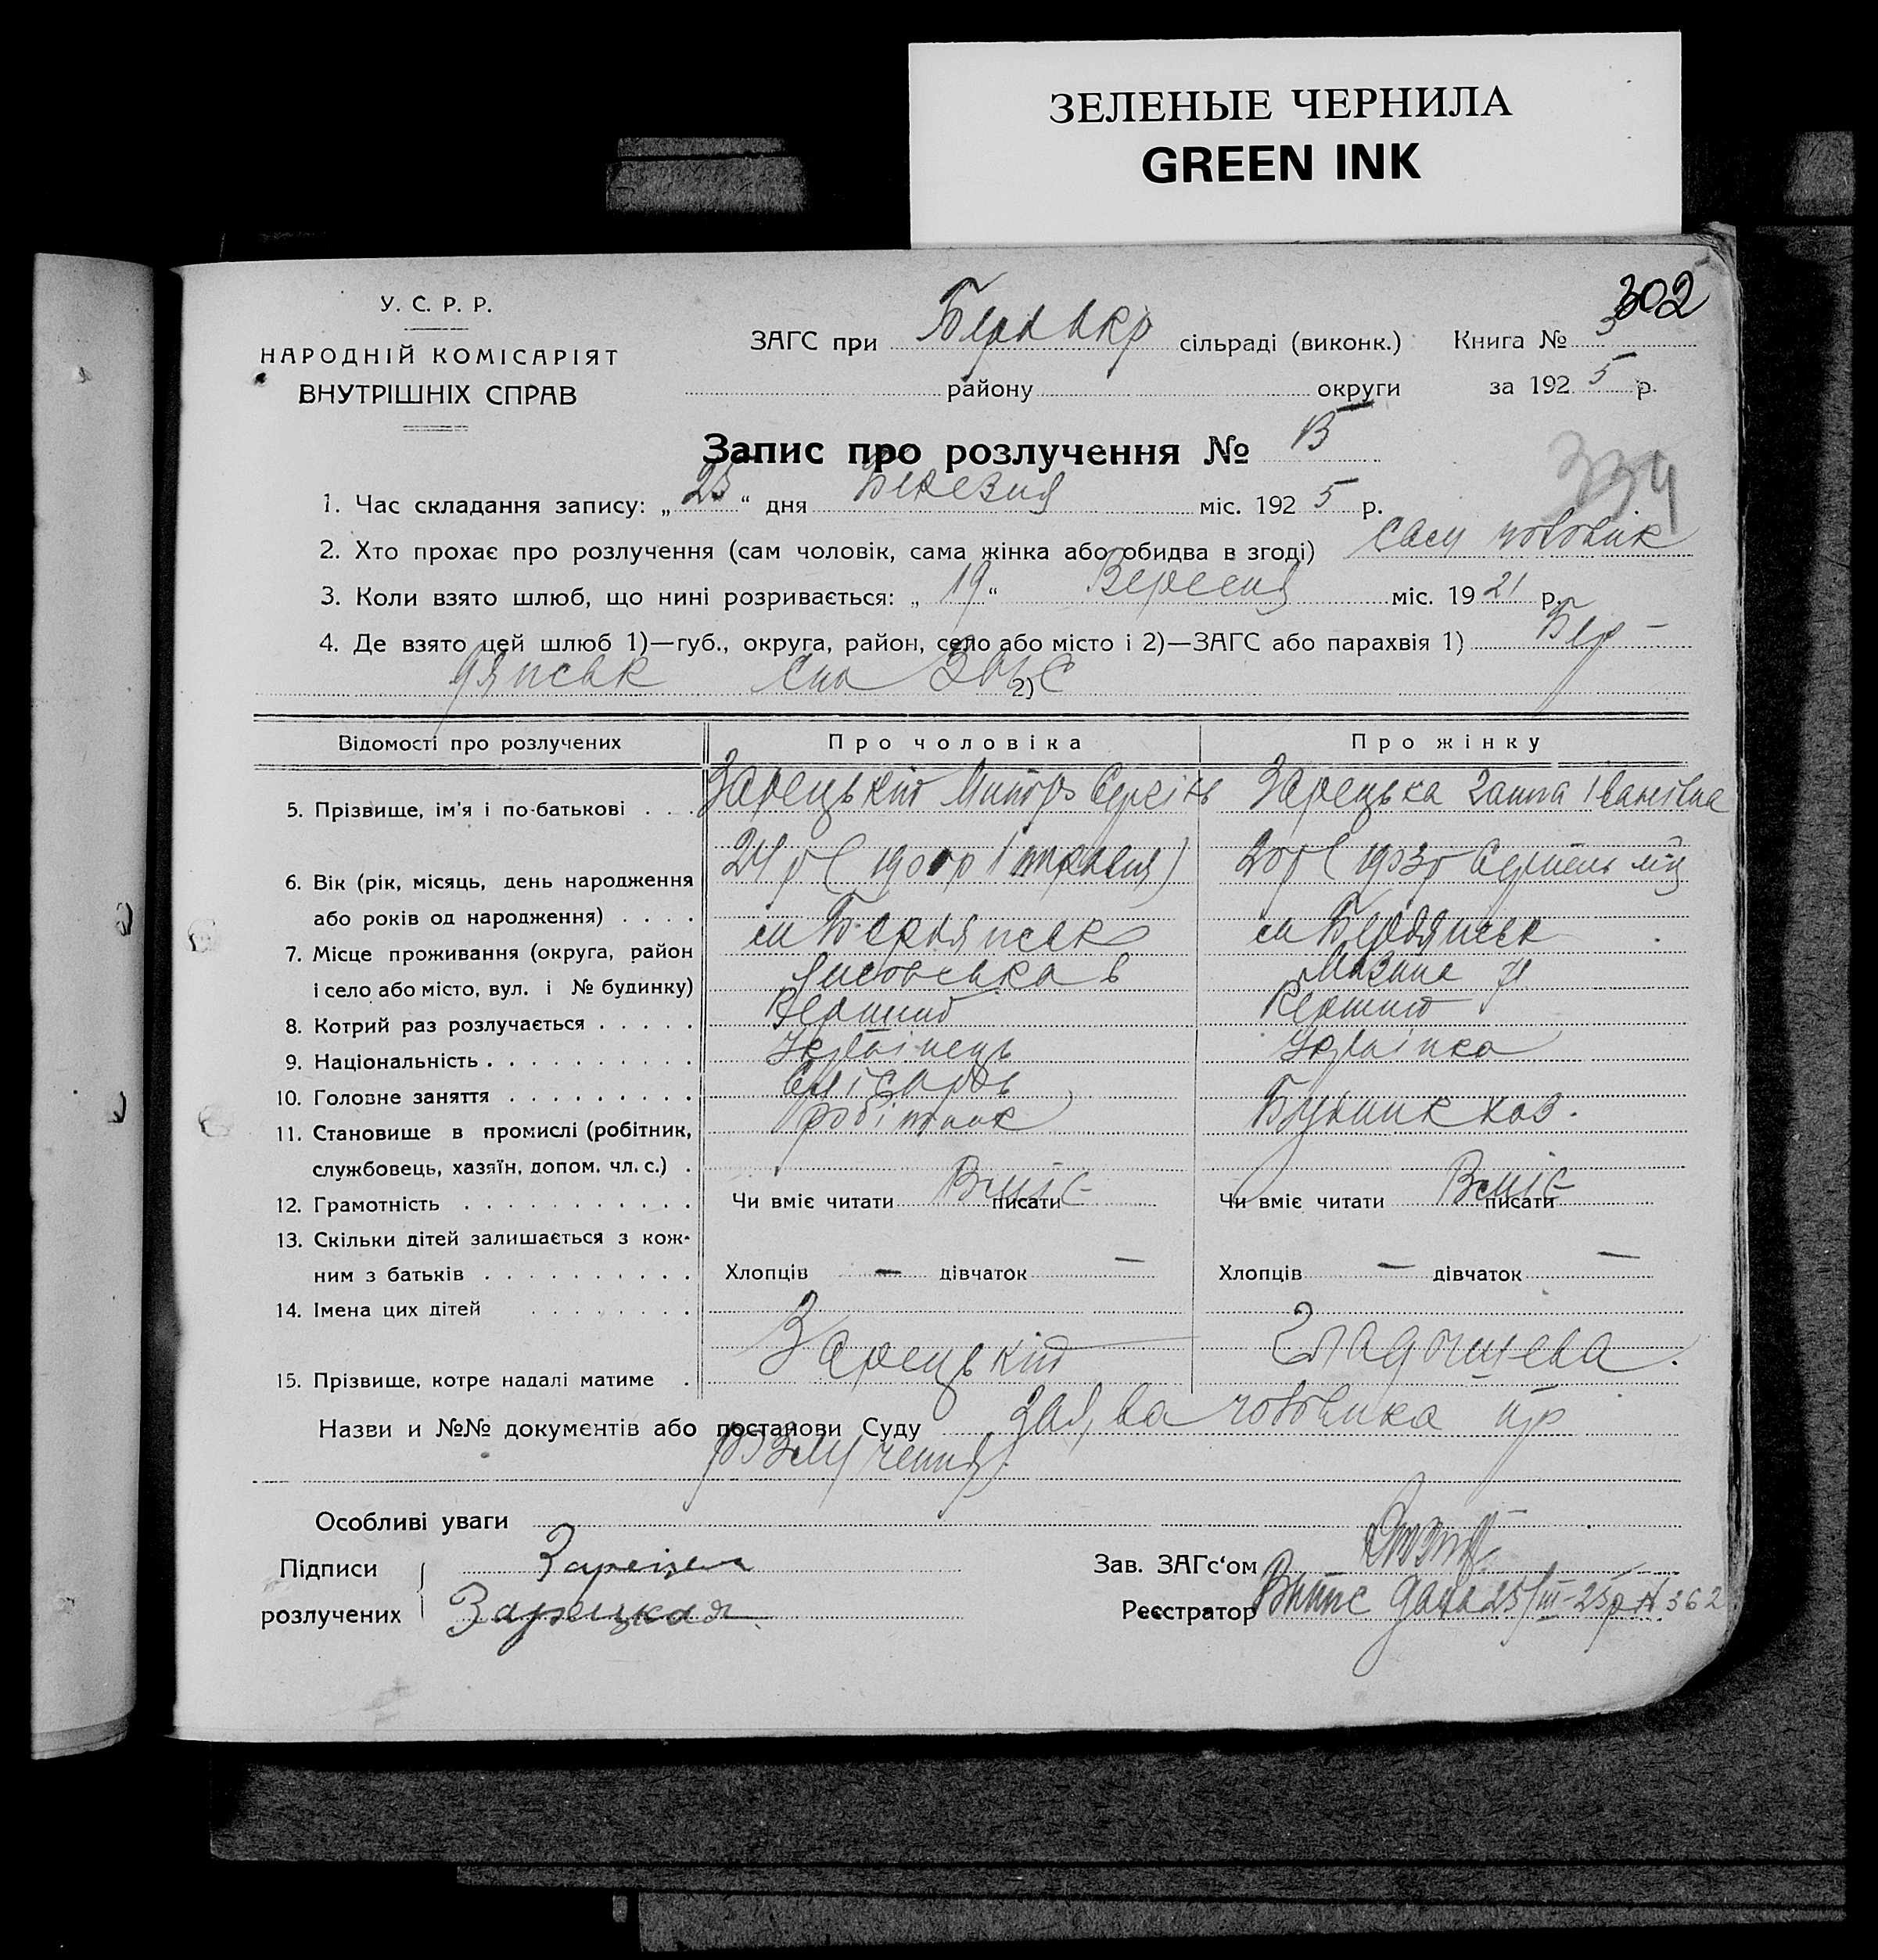 ЗЕЛЕНЫЕ ЧЕРНИЛА
GREEN INK
302
У. С. Р. Р.
НАРОДНІЙ КОМІСАРІЯТ
ВНУТРІШНІХ СПРАВ
ЗАГС при сільраді (виконк.) Книга №
району округи за 1925 р.
Запис про розлучення №
334
1. Час складання запису: „ “ дня Березня міс. 1925 р.
2. Хто прохає про розлучення (сам чоловік, сама жінка або обидва в згоді) сам чоловік
3. Коли взято шлюб, що нині розривається: „19“ Вересня міс. 1921 р.
4. Де взято цей шлюб 1)—губ., округа, район, село або місто і 2)—ЗАГС або парахвія 1) Бер-
дянськ 2) ЗАГС
Відомості про розлучених Про чоловіка Про жінку
5. Прізвище, ім'я і по-батькові . . . Зарецький Сергієв Зарецька Іванівна
6. Вік (рік, місяць, день народження 24 р ( 1900 р 1 травня) 20 р ( 1903 р Серпень
або років од народження) . . . .
7. Місце проживання (округа, район м Бердянськ м Бердянськ
і село або місто, вул. і № будинку)
8. Котрий раз розлучається . . . . . Перший Перший
9. Національність . . . . . . . . . . Українець Українка
10. Головне заняття . . . . . . . . . Слісарь
11. Становище в промислі (робітник, робітник
службовець, хазяїн, допом. чл. с.) .
12. Грамотність . . . . . . . . . . . Чи вміє читати Вміє писати Чи вміє читати Вміє писати
13. Скільки дітей залишається з кож-
ним з батьків . . . . . . . . . . Хлопців — дівчаток — Хлопців — дівчаток —
14. Імена цих дітей . . . . . . . .
15. Прізвище, котре надалі матиме . Зарецький Гладчищева.
Назви и №№ документів або постанови Суду Заява чоловіка пр
розлучення
Особливі уваги
Підписи
розлучених Зарецкая
Зав. ЗАГс‘ом
Реєстратор Витис дана 25/III-25р № 362